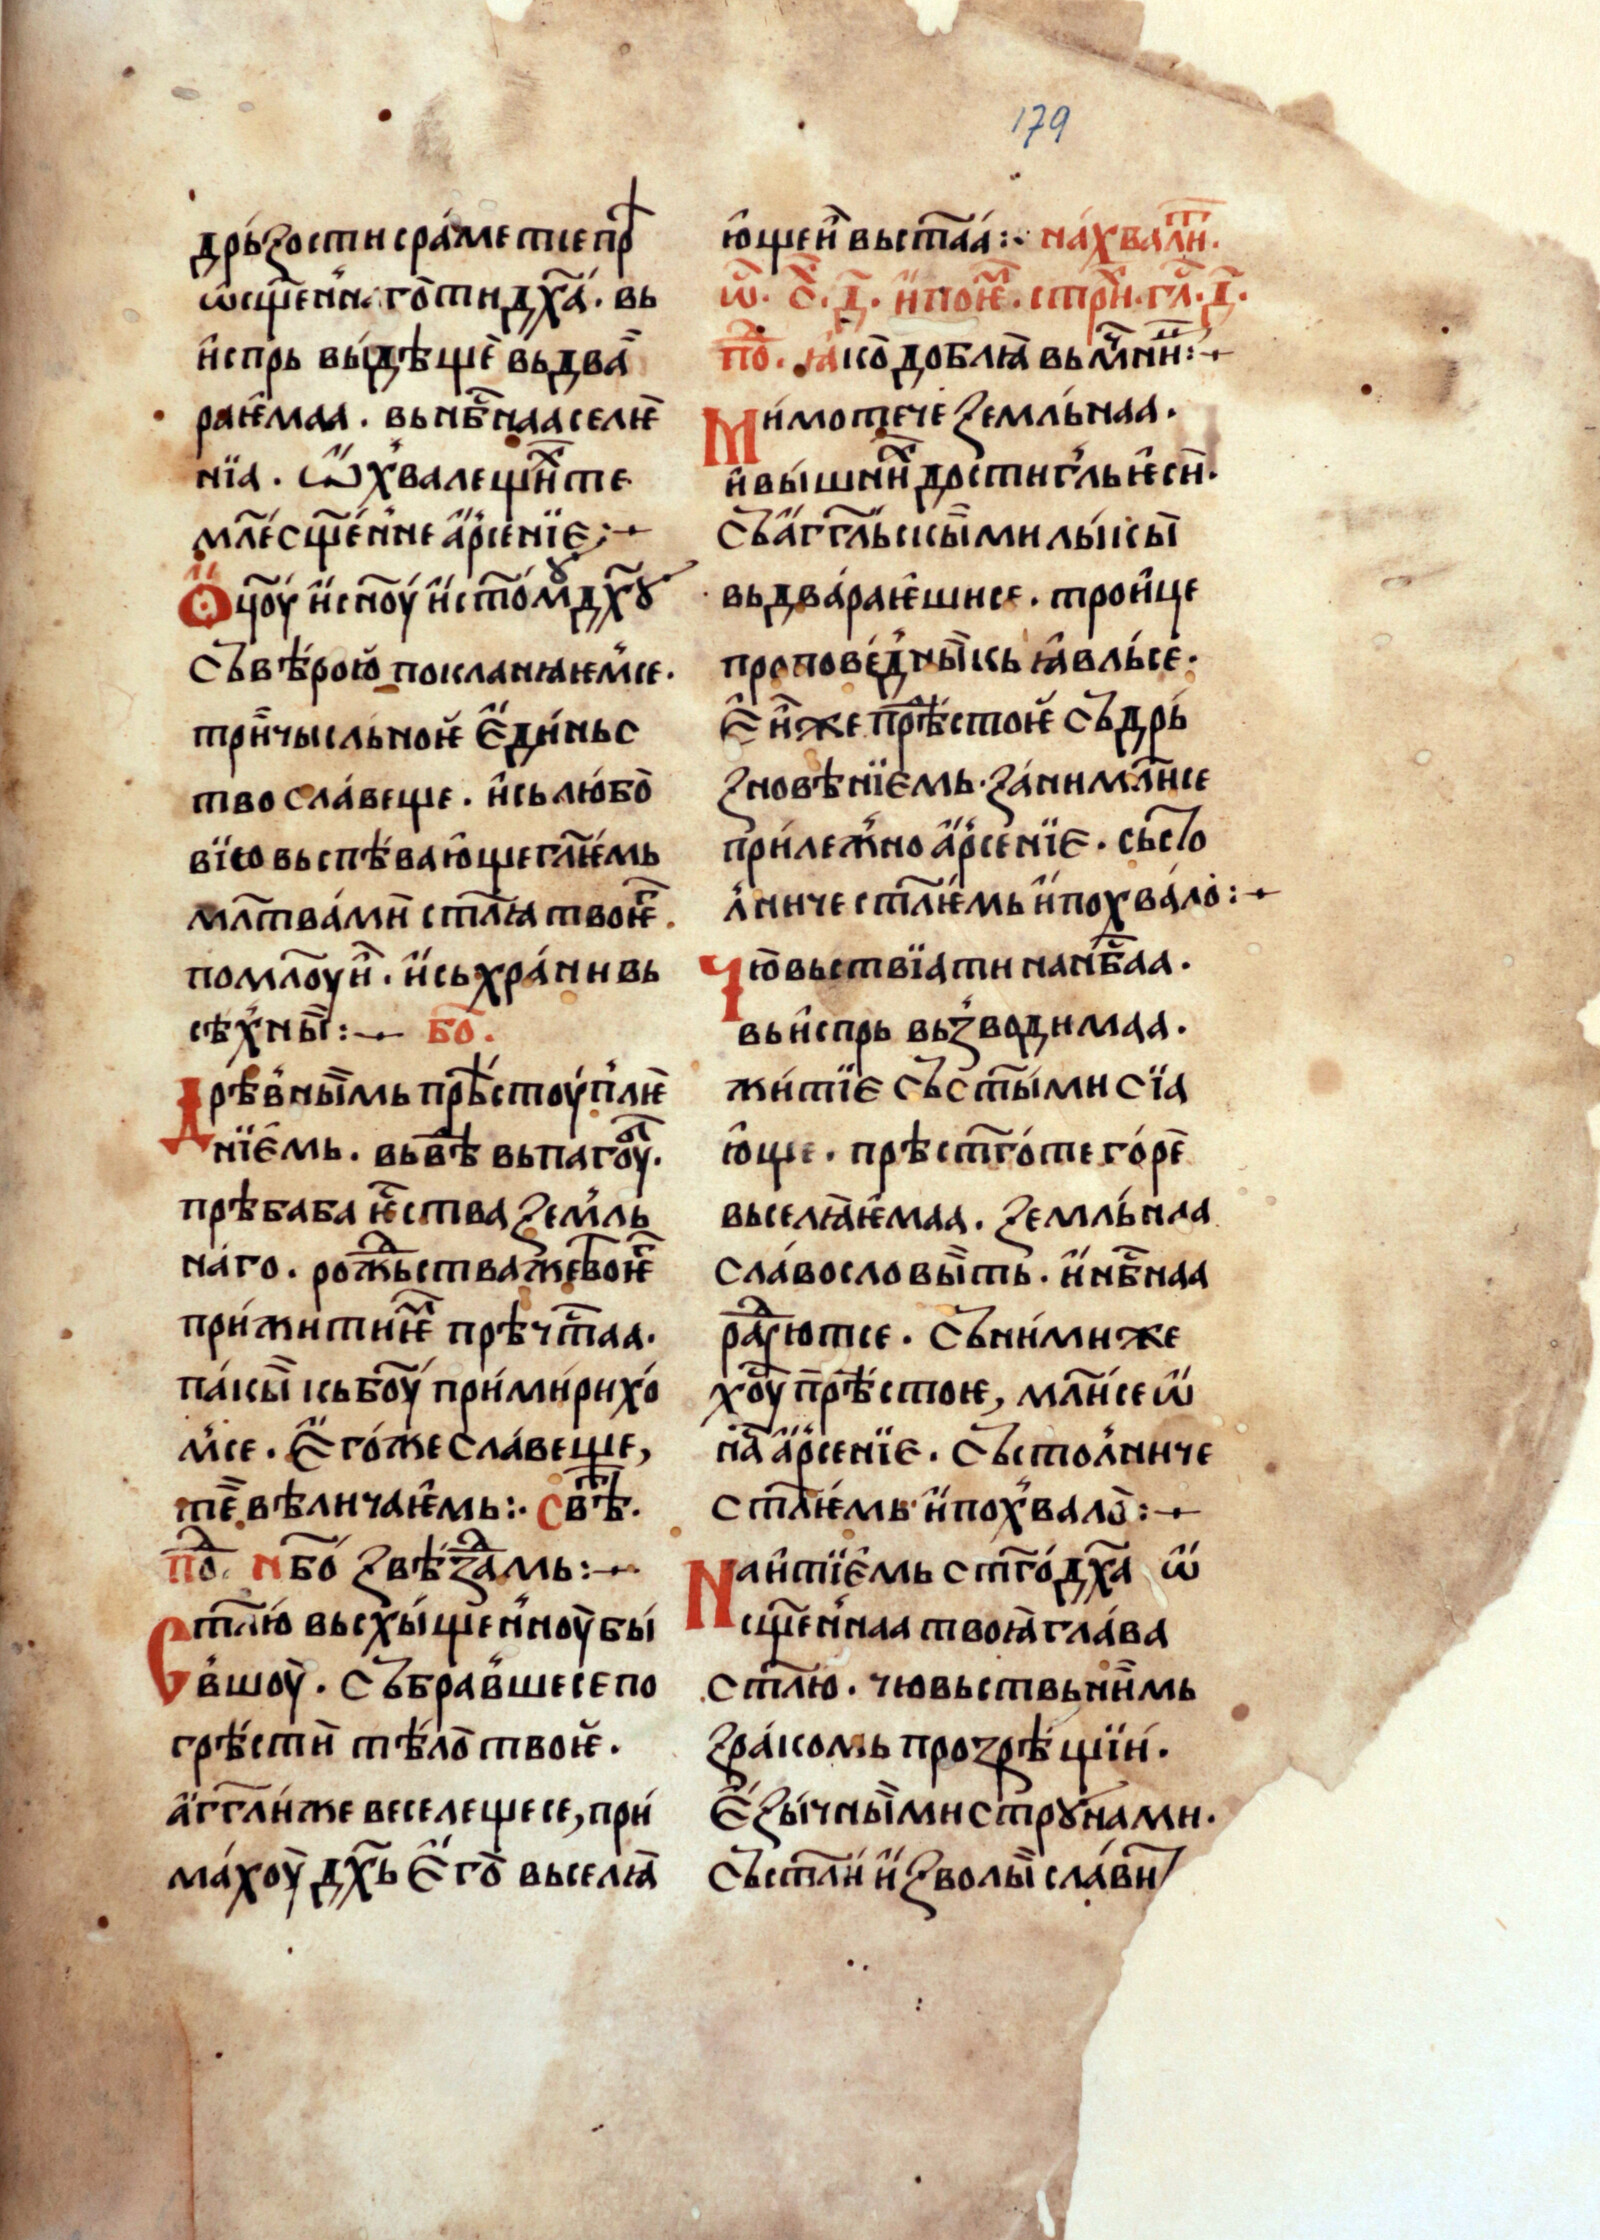 179
дрь́зости сра́мет се прⷣ
ѡ҆сщ҃ен̾на гѡ ти дх҃а́. вь
и҆спрь вы́дѣще вьдва
раѥ҆маа. вь нбⷭ҇наа селѥ
нїа. ѿ х̾валещиⷯ те
млⷭ҇е сщ҃ен̾не а҆р̾сенїѥ :~
Ѻ҆ц҃оу́ и҆ сн҃оу́ и҆ ст҃омꙋ дх҃ꙋ
съ вѣ́рою покланꙗѥм̾се.
три чысльноѥ ѥ҆ди́ньс
тво сла́веще. и҆ сь лю́бо
вїю вьспѣ́вающе гл҃ѥмь
млт҃ва́ми ст҃лꙗ твоѥⷢ.
помл҃оуи. и҆ сьхра́ни вь
сѣх̾ ны :~ бо.
Дрѣв̾нымь прѣстоуп̾лѥ
нїѥ҆мь. вь вѣ вьпагоуⷠ.
прѣбаба ѥ҆ства земль
на́го. рожⷣьства же твоѥⷢ
прижитиѥⷨ прѣчтⷭ҇аа.
па́кы кь бо҃у́ прими́рихо́
м̾се. Ѥ҆го́же сла́веще,
те вѣличаѥ҆мь :· свѣⷮ.
поⷣ. нбо́ звѣздаⷨмь :~
Ст҃лю́ вьсхы́щен̾ноу бы́
в̾шоу. събрав̾шесе по
грѣ́сти тѣ́ло твоѥ.
а҆гг҃ли́ же веселещесе, при
ма́хоу дх҃ь ѥ҆го вьселꙗ
ю҆щеи вьстⷭ҇аа́ :· на́ хвалⷮи.
ѿ. с. д. и҆ поѥⷨ. стрⷯи. гл. д.
поⷣ. ꙗ҆ко доблꙗ вь мⷱ҇ниⷰ :~
Ми́мотече земль́наа.
и҆ вы́шниⷯ достигль ѥ҆си.
Съ а҆гг҃льскыми лы́кы
вьдва́раѥ҆ши се. трои҆це
проповѣ́д̾ныкь ꙗ҆вль́се.
Ѥ҆и҆же прѣⷣстоѥ съ дрь́
зновѣнїѥмь. за ни мл҃исе
при́леж̾но а҆р̾сенїѥ. сьсто
л̾ниче ст҃лѥмь и҆ похва́ло :~
Чю́вьствїа ти на нбⷭ҇аа.
вьи҆спрь вьзводимаа.
жи́тїѥ съ ст҃ы́ми сїа
ю҆ще. прѣст҃го те го́ре
вьселꙗѥ҆маа. земль́наа
славословы́ть. и҆ нбⷭ҇наа
раⷣꙋютсе. Съ ни́ми же
хо҃у прѣⷣстоѥ, мл҃и се ѿ
на а҆р̾сенїѥ. Състол̾ниче
ст҃лѥмь и҆ пох̾вало :~
Наи҆тїѥ҆мь ст҃го́ дх҃а ѡ҆
сщ҃ен̾наа твоꙗ гла́ва
ст҃лю. чювьствьнимь
зра́комь прозрѣ́щїи́.
Ѥ҆зы́чными стрꙋнами.
Съ ст҃ли́ и҆зволы́ сла́вит